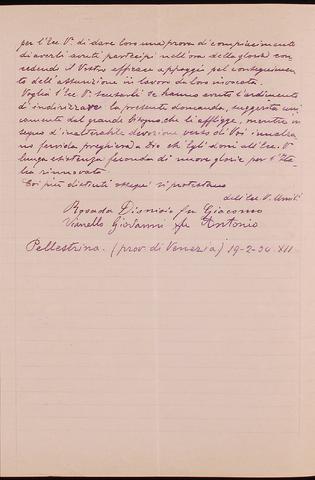 per l'Ecc. Vª di dare loro una prova di compiacimento
di averli avuti partecipi nell'ora della gloria con
cedendo il Vostro efficace appoggio pel conseguimen
to dell'assunzione in lavori da loro invocata.
Voglia l'Ecc. Vª scusarli se hanno avuto l'ardimento
di indirizzare la presente domanda, suggerita uni
camente dal grande bisogno che li affligge, mentre in
segno d'inalterabile devozione verso di Voi innalza
no fervida preghiera a Dio che Egli doni all'Ecc. Vª
lunga esistenza feconda di nuove glorie per l'Ita
lia rinnovata.
Coi più distinti ossequi si protestano
dell'Ecc. V. Umil.
Rosada Dionisio fu Giacomo
Vianello Giovanni fu Antonio
Pellestrina. (prov. di Venezia) 19-2-34 XII